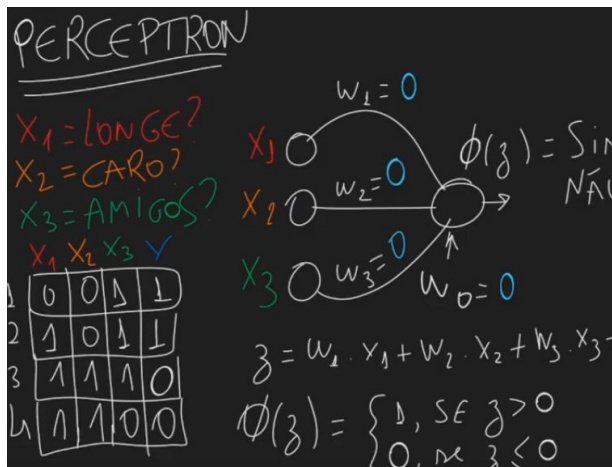 PERCEPTRON
X1 = LONGE?
X2 = CARO?
X3 = AMIGOS?
X1 X2 X3 Y
1 0 0 1 1
2 1 0 1 1
3 1 1 1 0
4 1 1 0 0
w1 = 0
X1
w2 = 0
X2
w3 = 0
X3
w0 = 0
ϕ(z) = SIM
NÃO
z = w1 . x1 + w2 . x2 + w3 . x3
ϕ(z) = { 1, SE z > 0
0, se z < 0